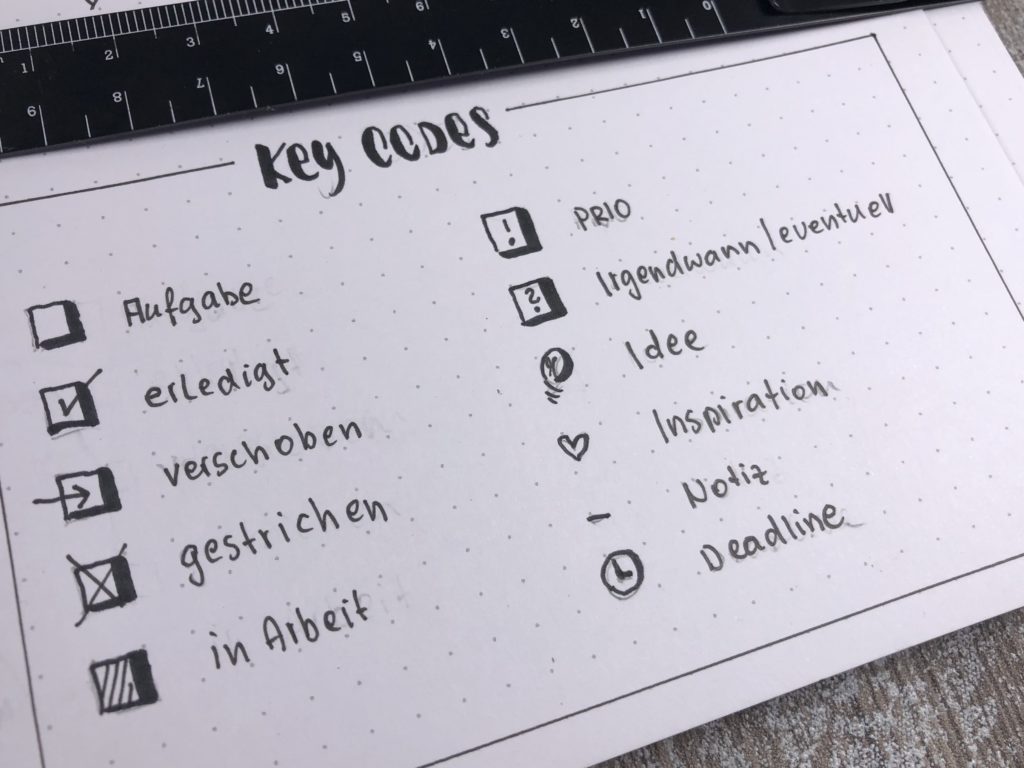 1 2 3 4 5 6
9 8 7 6 5 4 3 2 1 0
KEY CODES
Aufgabe
erledigt
verschoben
gestrichen
in Arbeit
! PRIO
? Irgendwann/eventuell
Idee
Inspiration
- Notiz
Deadline